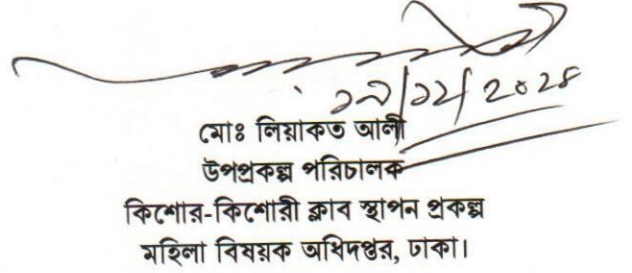 ১৯/১২/২০২৪
মোঃ লিয়াকত আলী
উপপ্রকল্প পরিচালক
কিশোর-কিশোরী ক্লাব স্থাপন প্রকল্প
মহিলা বিষয়ক অধিদপ্তর, ঢাকা।